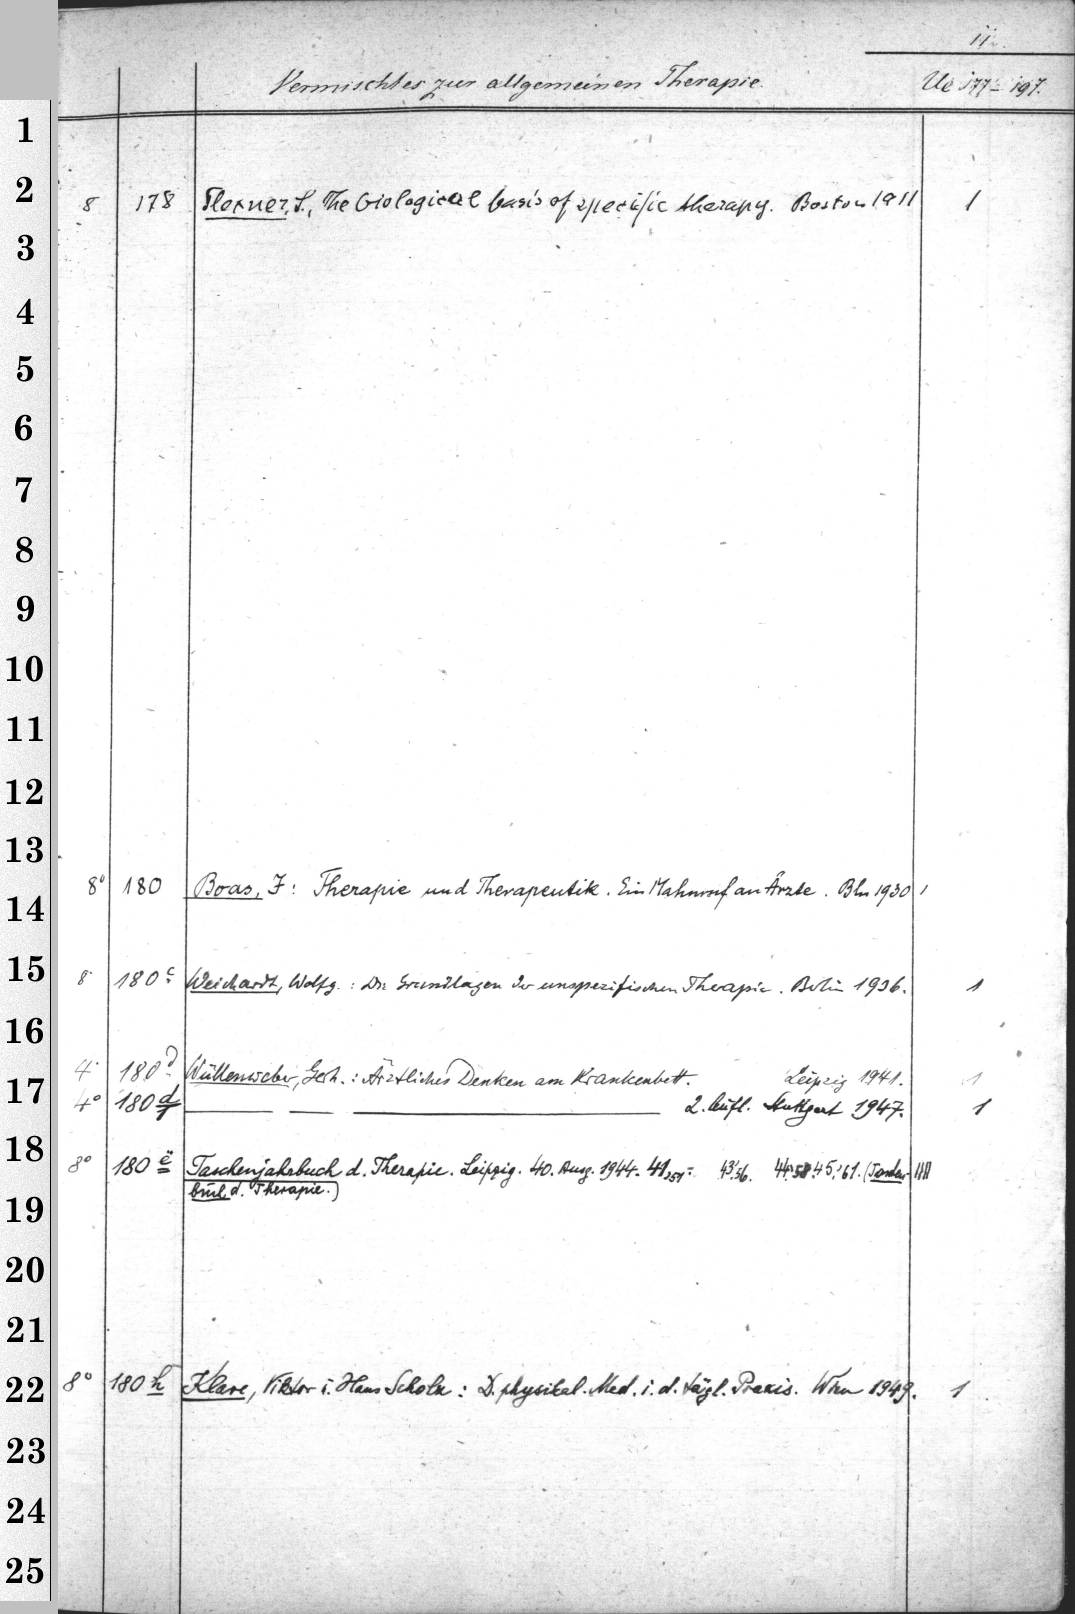 11.
Vermischtes zur allgemeinen Therapie. Ue 177-197.
1
2
8 178 Flexner, S., The biological basis of specific therapy. Boston 1911 1
3
4
5
6
7
8
9
10
11
12
13
8° 180 Boas, I: Therapie und Therapeutik. Ein Mahnruf an Ärzte. Bln 1930 1
14
15
8 180 c Weichardt, Wolfg.: Die Grundlagen der unspezifischen Therapie. Berlin 1936. 1
16
4 180 d Wüllenweber, Gerh.: Ärztliches Denken am Krankenbett. Leipzig 1941. 1
17
4° 180 d 2. Aufl. Stuttgart 1947. 1
18
8° 180 e Taschenjahrbuch d. Therapie. Leipzig. 40. Ausg. 1944. 41,51. 43,56. 44,58. 45,61. (Taschen- IIII
buch d. Therapie.)
19
20
21
22
8° 180 h Klare, Viktor u. Hans Scholz: D. physikal. Med. i. d. tägl. Praxis. Wien 1949. 1
23
24
25